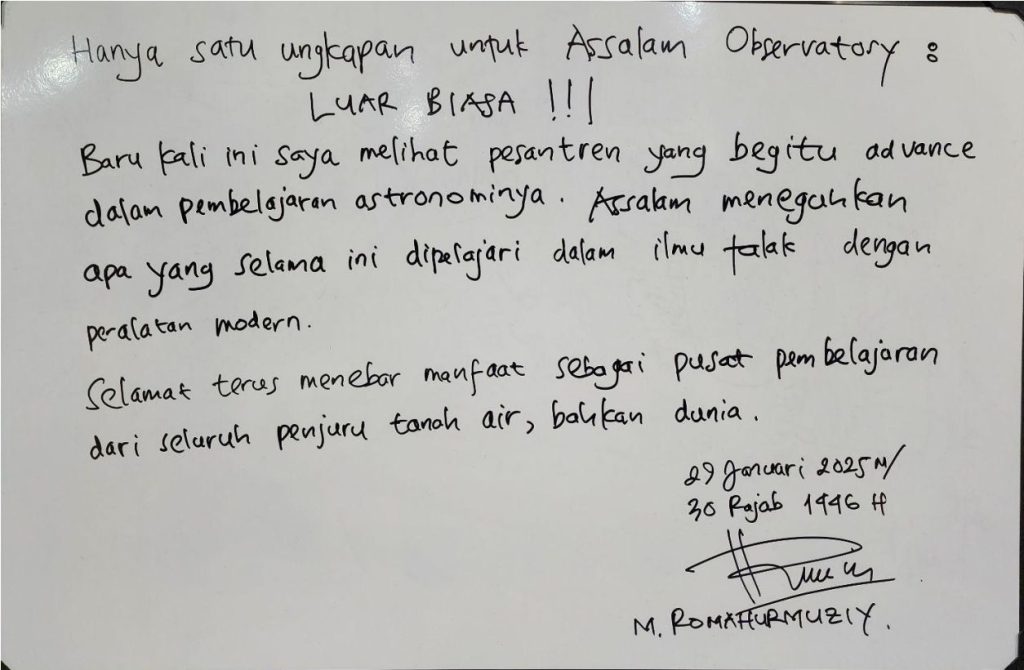 Hanya satu ungkapan untuk Assalam Observatory :
LUAR BIASA !!!
Baru kali ini saya melihat pesantren yang begitu advance
dalam pembelajaran astronominya. Assalam meneguhkan
apa yang selama ini dipelajari dalam ilmu falak dengan
peralatan modern.
Selamat terus menebar manfaat sebagai pusat pembelajaran
dari seluruh penjuru tanah air, bahkan dunia.
29 Januari 2025 M/
30 Rajab 1446 H
M. ROMAHURMUZIY.